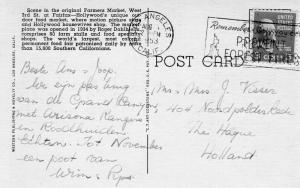 Scene in the original Farmers Market, West
3rd St. at Fairfax—Hollywood's unique out-
door food market, where motion picture stars
and Hollywood housewives shop. The market
place was opened in 1934 by Roger Dahlhjelm,
comprises 80 farm stalls and food specialty
shops. The world's largest, most colorful
permanent food fair patronized daily by more
than 15,000 Southern Californians.
ANGELES
1953
PREVENT
FOREST FIRES
POST CARD
Beste Ans - Joop,
We zijn pas terug
van de Grand Canyon
met Arizona Rangers
en Roodhuiden
Echten. Tot November
een poot van
Wim & Pop
Mrs - Mrs J. Visser
Noordpolderkade
The Hague
Holland